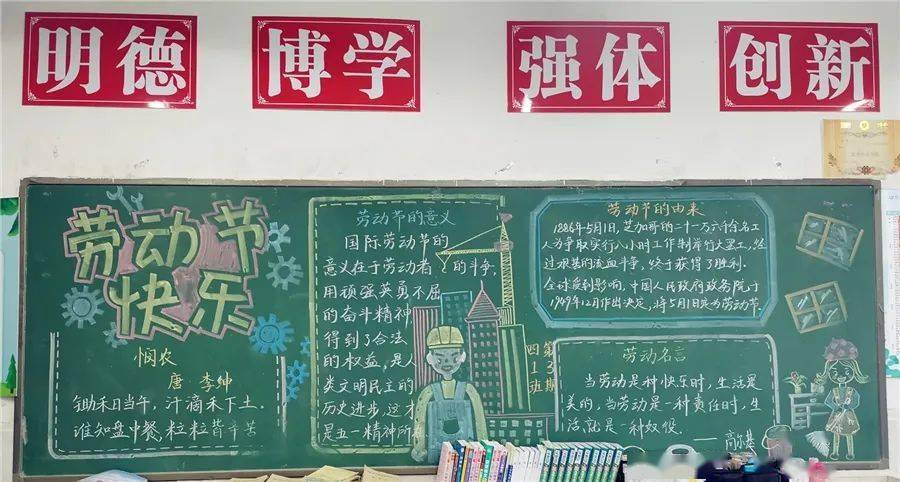 明德
博学
强体
创新
劳动节
快乐
悯农
唐 李绅
锄禾日当午，汗滴禾下土.
谁知盘中餐，粒粒皆辛苦
劳动节的意义
国际劳动节的
意义在于劳动者
的斗争，
用顽强英勇不屈
的奋斗精神
得到了合法
的权益，是人
类文明民主的
历史进步，这才
是五一精神所在
劳动节的由来
1886年5月1日，芝加哥的二十一万六千余名工
人为争取实行八小时工作制举行大罢工，经
过艰苦的流血斗争，终于获得了胜利.
全球受到影响，中国人民政府政务院于
1949年12月作出决定，将5月1日定为劳动节.
第
13
期
四
班
劳动名言
当劳动是种快乐时，生活是
美的，当劳动是一种责任时，生
活就是一种奴役.
——高尔基